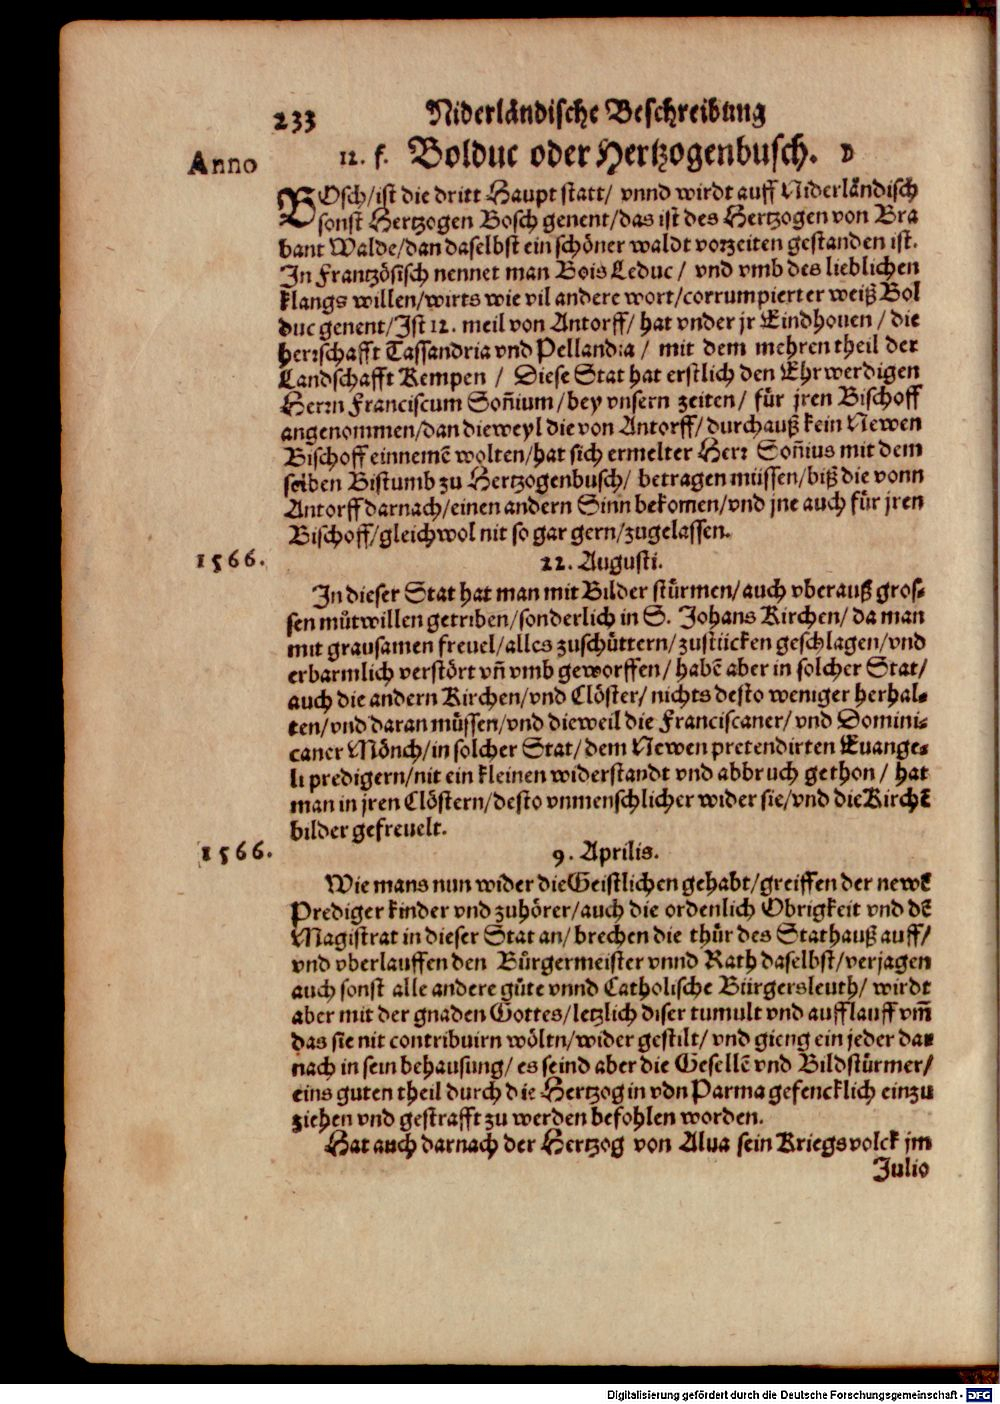 233 Niderländische Beschreibung
Anno 12. f. Bolduc oder Hertzogenbusch. D
BOsch/ist die dritt Haupt statt/ vnnd wirdt auff Niderländisch
sonst Hertzogen Bosch genent/das ist des Hertzogen von Bra
bant Walde/dan daselbst ein schöner waldt vorzeiten gestanden ist.
In Frantzösisch nennet man Bois Leduc/ vnd vmb des lieblichen
klangs willen/wirts wie vil andere wort/corrumpierter weiß Bol
duc genent/Ist 12. meil von Antorff/ hat vnder jr Eindhouen/ die
herrschafft Tassandria vnd Pellandia/ mit dem mehren theil der
Landschafft Kempen/ Diese Stat hat erstlich den Ehrwerdigen
Herrn Franciscum Soñium/bey vnsern zeiten/ für jren Bischoff
angenommen/dan dieweyl die von Antorff/durchauß kein Newen
Bischoff einnemẽ wolten/hat sich ermelter Herr Soñius mit dem
selben Bistumb zu Hertzogenbusch/ betragen müssen/biß die vonn
Antorff darnach/einen andern Sinn bekomen/vnd jne auch für jren
Bischoff/gleichwol nit so gar gern/zugelassen.
1566. 22. Augusti.
In dieser Stat hat man mit Bilder stürmen/auch vberauß gros-
sen můtwillen getriben/sonderlich in S. Johans Kirchen/ da man
mit grausamen freuel/alles zuschüttern/zustücken geschlagen/vnd
erbarmlich verstört vñ vmb geworffen/ habẽ aber in solcher Stat/
auch die andern Kirchen/vnd Clöster/ nichts desto weniger herhal-
ten/vnd daran müssen/vnd dieweil die Franciscaner/ vnd Domini-
caner Mönch/in solcher Stat/dem Newen pretendirten Euange-
li predigern/nit ein kleinen widerstandt vnd abbruch gethon/ hat
man in jren Clöstern/desto vnmenschlicher wider sie/vnd die Kirchẽ
bilder gefreuelt.
1566. 9. Aprilis.
Wie mans nun wider die Geistlichen gehabt/greiffen der newẽ
Prediger kinder vnd zuhörer/auch die ordenlich Obrigkeit vnd dẽ
Magistrat in dieser Stat an/brechen die thür des Stathauß auff/
vnd vberlauffen den Bürgermeister vnnd Rath daselbst/verjagen
auch sonst alle andere gůte vnnd Catholische Bürgersleuth/ wirdt
aber mit der gnaden Gottes/letzlich diser tumult vnd aufflauff vm̃
das sie nit contribuirn wöltn/wider gestilt/ vnd gieng ein jeder dar
nach in sein behausung/es seind aber die Gesellẽ vnd Bildstürmer/
eins guten theil durch die Hertzogin vdn Parma gefencklich einzu
ziehen vnd gestrafft zu werden befohlen worden.
Hat auch darnach der Hertzog von Alua sein Kriegsvolck jm
Julio
Digitalisierung gefördert durch die Deutsche Forschungsgemeinschaft - DFG